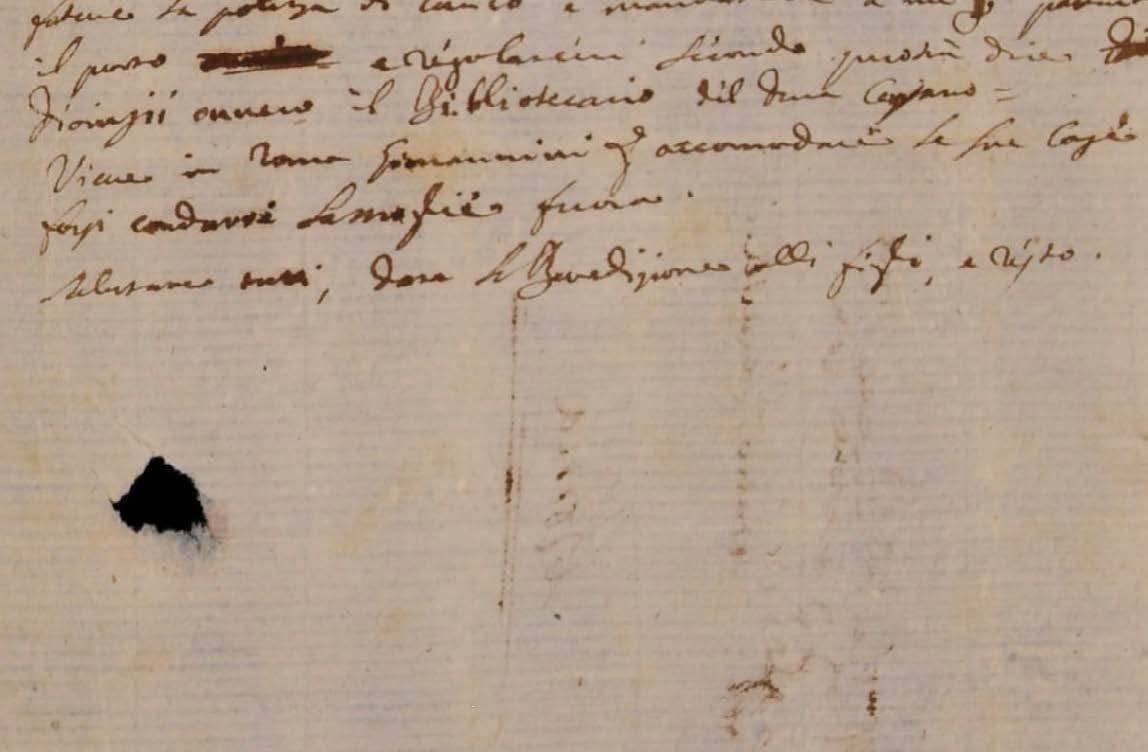 fatene la poliza di carico e mandatela a me p
il porto e regolarcini secondo quoto dice
Dionigii ouuero il Bibliotecario dil Duca Caisano =
Viene in Roma Giouannini p accomodare le sue Case
forsi condurre la moglie fuora.
salutane tutti, dare la Benedizione alli figli, e resto.